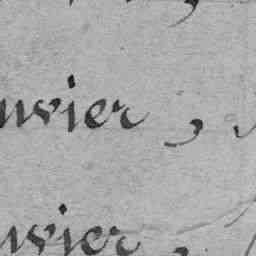 nvier ,
nvier ,